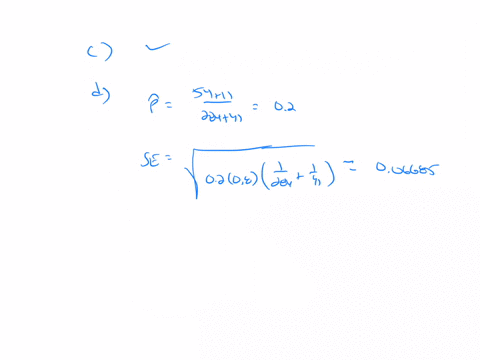 c) ✓
d) p̂ = 54+11 / 284+41 = 0.2
SE = √(0.2(0.8)(1/284 + 1/41)) = 0.06685